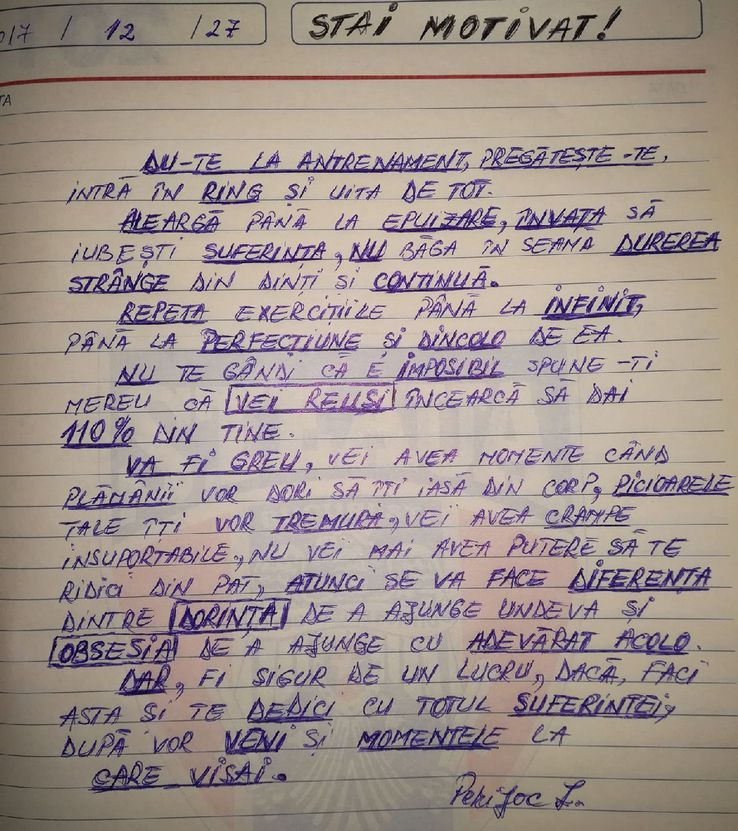 017 / 12 / 27
STAI MOTIVAT!
TA
DU-TE LA ANTRENAMENT, PREGĂTEȘTE-TE,
INTRĂ ÎN RING ȘI UITA DE TOT.
ALEARGĂ PÂNĂ LA EPUIZARE, ÎNVAȚA SĂ
IUBEȘTI SUFERINȚA, NU BĂGA ÎN SEAMA DUREREA
STRÂNGE DIN DINȚI SI CONTINUĂ.
REPETA EXERCIȚIILE PÂNĂ LA INFINIT,
PÂNĂ LA PERFECȚIUNE ȘI DINCOLO DE EA.
NU TE GÂNDI CĂ E IMPOSIBIL SPUNE-ȚI
MEREU CĂ VEI REUSI ÎNCEARCĂ SĂ DAI
110% DIN TINE.
VA FI GREU, VEI AVEA MOMENTE CÂND
PLĂMÂNII VOR DORI SĂ ÎȚI IASĂ DIN CORP, PICIOARELE
TALE ÎȚI VOR TREMURA, VEI AVEA CRAMPE
INSUPORTABILE, NU VEI MAI AVEA PUTERE SĂ TE
RIDICI DIN PAT, ATUNCI SE VA FACE DIFERENȚA
DINTRE DORINȚA DE A AJUNGE UNDEVA ȘI
OBSESIA DE A AJUNGE CU ADEVĂRAT ACOLO.
DAR, FI SIGUR DE UN LUCRU, DACĂ, FACI
ASTA SI TE DEDICI CU TOTUL SUFERINȚEI,
DUPĂ VOR VENI ȘI MOMENTELE LA
CARE VISAI.